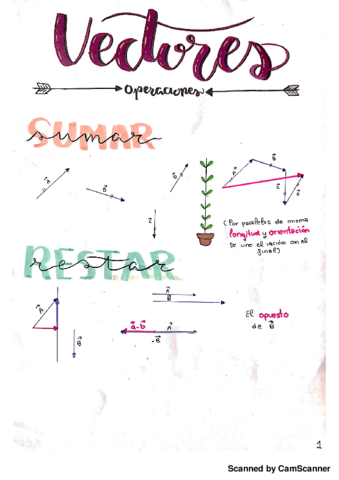 Vectores
Operaciones
SUMAR
sumar
A
B
B
A
B
(Por paralelas de misma
longitud y orientación
se une el inicio con el
final)
RESTAR
restar
A
B
A
B
a-b
A
-B
El opuesto
de B
1
Scanned by CamScanner